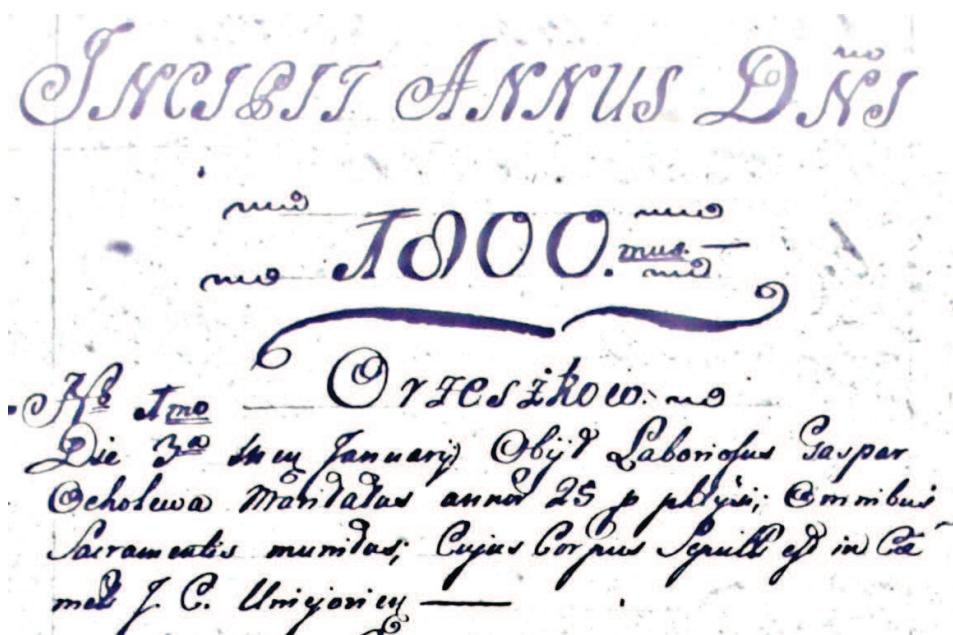 INCIPIT ANNUS DÑI
1800.mus
Nro 1mo Orzeszkow.
Die 3a Januarij Obijt Laboriosus Gaspar
Ocholewa Maritatus annor 25 p phtysi; Omnibus
Sacramentis munitus; Cujus Corpus Sepult est in Cœ
met J. C. Uniejoviey